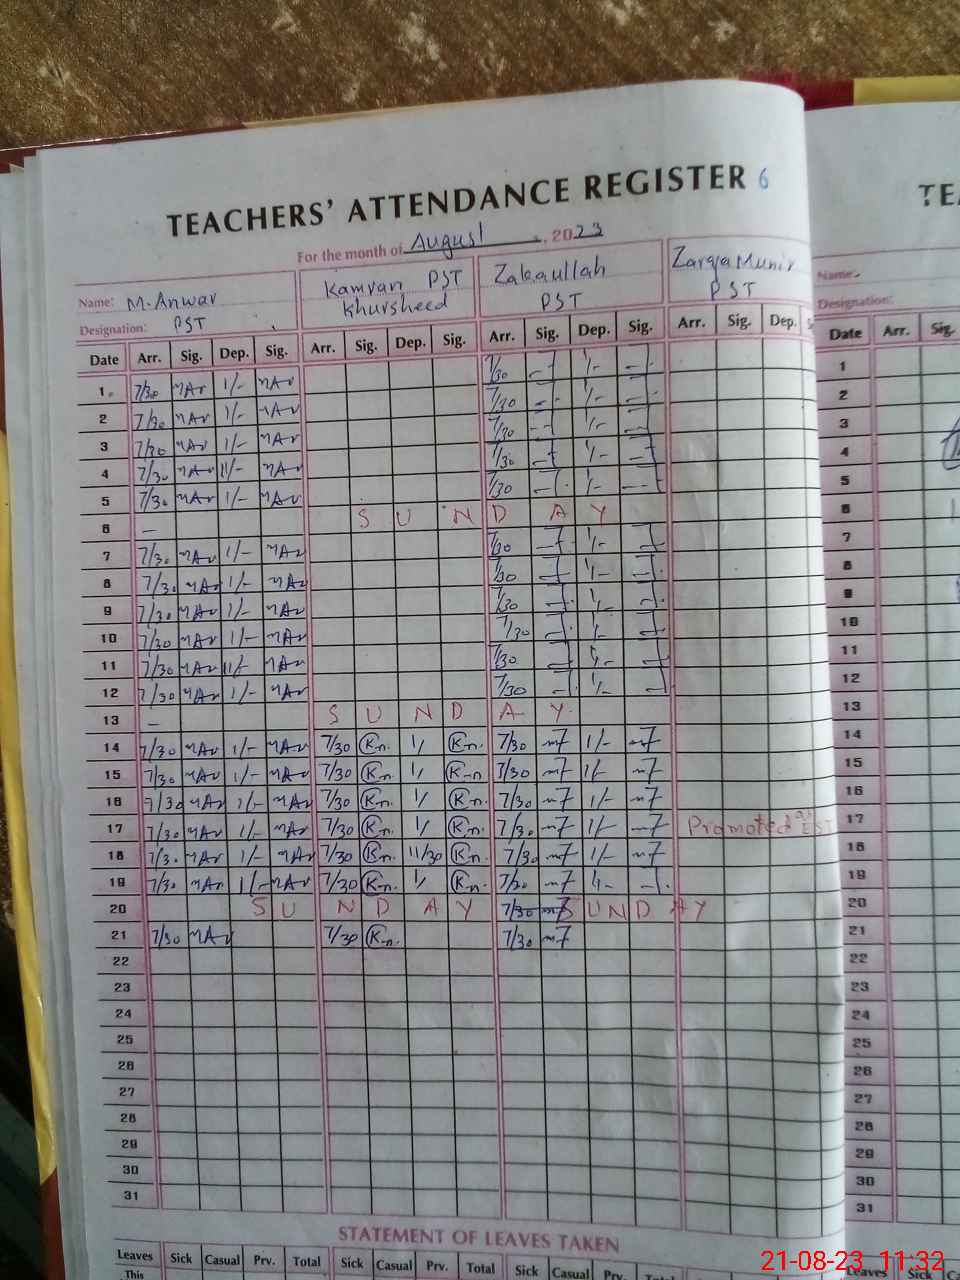 TEACHERS' ATTENDANCE REGISTER 6
For the month of August, 2023
Name: M. Anwar Kamran PST Zakaullah Zarqa Munir Name:
Designation: PST Khursheed PST PST Designation:
Date Arr. Sig. Dep. Sig. Arr. Sig. Dep. Sig. Arr. Sig. Dep. Sig. Arr. Sig. Dep. Date Arr. Sig.
1 7/30 MAr 1/- MAr 7/30 1/- 1
2 7/30 MAr 1/- MAr 7/30 1/- 2
3 7/30 MAr 1/- MAr 7/30 1/- 3
4 7/30 MAr 11/- MAr 7/30 1/- 4
5 7/30 MAr 1/- MAr 7/30 1/- 5
6 — S U N D A Y 6
7 7/30 MAr 1/- MAr 7/30 1/- 7
8 7/30 MAr 1/- MAr 7/30 1/- 8
9 7/30 MAr 1/- MAr 7/30 1/- 9
10 7/30 MAr 1/- MAr 7/30 1/- 10
11 7/30 MAr 11/- MAr 7/30 11
12 7/30 MAr 1/- MAr 7/30 1/- 12
13 — S U N D A Y 13
14 7/30 MAr 1/- MAr 7/30 Kn. 1/ Kn. 7/30 1/- 14
15 7/30 MAr 1/- MAr 7/30 Kn. 1/ Kn. 7/30 1/- 15
16 7/30 MAr 1/- MAr 7/30 Kn. 1/ Kn. 7/30 1/- 16
17 7/30 MAr 1/- MAr 7/30 Kn. 1/ Kn. 7/30 1/- Promoted as EST 17
18 7/30 MAr 1/- MAr 7/30 Kn. 11/30 Kn. 7/30 1/- 18
19 7/30 MAr 1/- MAr 7/30 Kn. 1/ Kn. 7/30 1/- 19
20 S U N D A Y 7/30 S U N D A Y 20
21 7/30 MAr 7/30 Kn. 7/30 21
22 22
23 23
24 24
25 25
26 26
27 27
28 28
29 29
30 30
31 31
STATEMENT OF LEAVES TAKEN
Leaves Sick Casual Prv. Total Sick Casual Prv. Total Sick Casual Prv. Total Sick Casual Leaves Sick
This
21-08-23 11:32